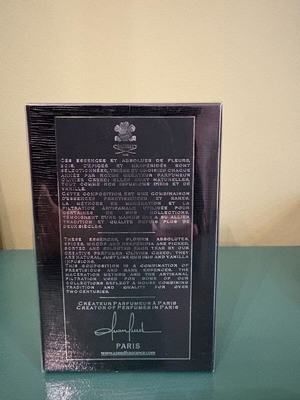 CES ESSENCES ET ABSOLUES DE FLEURS,
BOIS, D'ÉPICES ET HESPÉRIDÉS SONT
SÉLECTIONNÉES, TRIÉES ET CHOISIES CHAQUE
ANNÉE PAR NOTRE CRÉATEUR PARFUMEUR
OLIVIER CREED; ELLES SONT NATURELLES
TOUT COMME NOS INFUSIONS D'IRIS ET DE
VANILLE.
CETTE COMPOSITION EST UNE COMBINAISON
D'ESSENCES PRESTIGIEUSES ET RARES.
LA MÉTHODE DE MACÉRATION ET LA
FILTRATION ARTISANALE UTILISÉE POUR
CERTAINES DE NOS COLLECTIONS,
TÉMOIGNENT D'UNE MAISON QUI A SU ALLIER
TRADITION ET QUALITÉ DEPUIS PLUS DE
DEUX SIÈCLES.
THESE ESSENCES, FLOWER ABSOLUTES,
SPICES AND HESPERIDIA ARE PICKED,
SORTED AND SELECTED EACH YEAR BY OUR
CREATIVE PERFUMER OLIVIER CREED; THEY
ARE NATURAL JUST LIKE OUR IRIS AND VANILLA
INFUSIONS.
THIS COMPOSITION IS A COMBINATION OF
PRESTIGIOUS AND RARE ESSENCES. THE
MACERATION METHOD AND THE ARTISANAL
FILTRATION USED FOR SOME OF OUR
COLLECTIONS REFLECT A HOUSE COMBINING
TRADITION AND QUALITY FOR OVER
TWO CENTURIES.
CRÉATEUR PARFUMEUR À PARIS
CREATOR OF PERFUMES IN PARIS
PARIS
www.creedfragrance.com